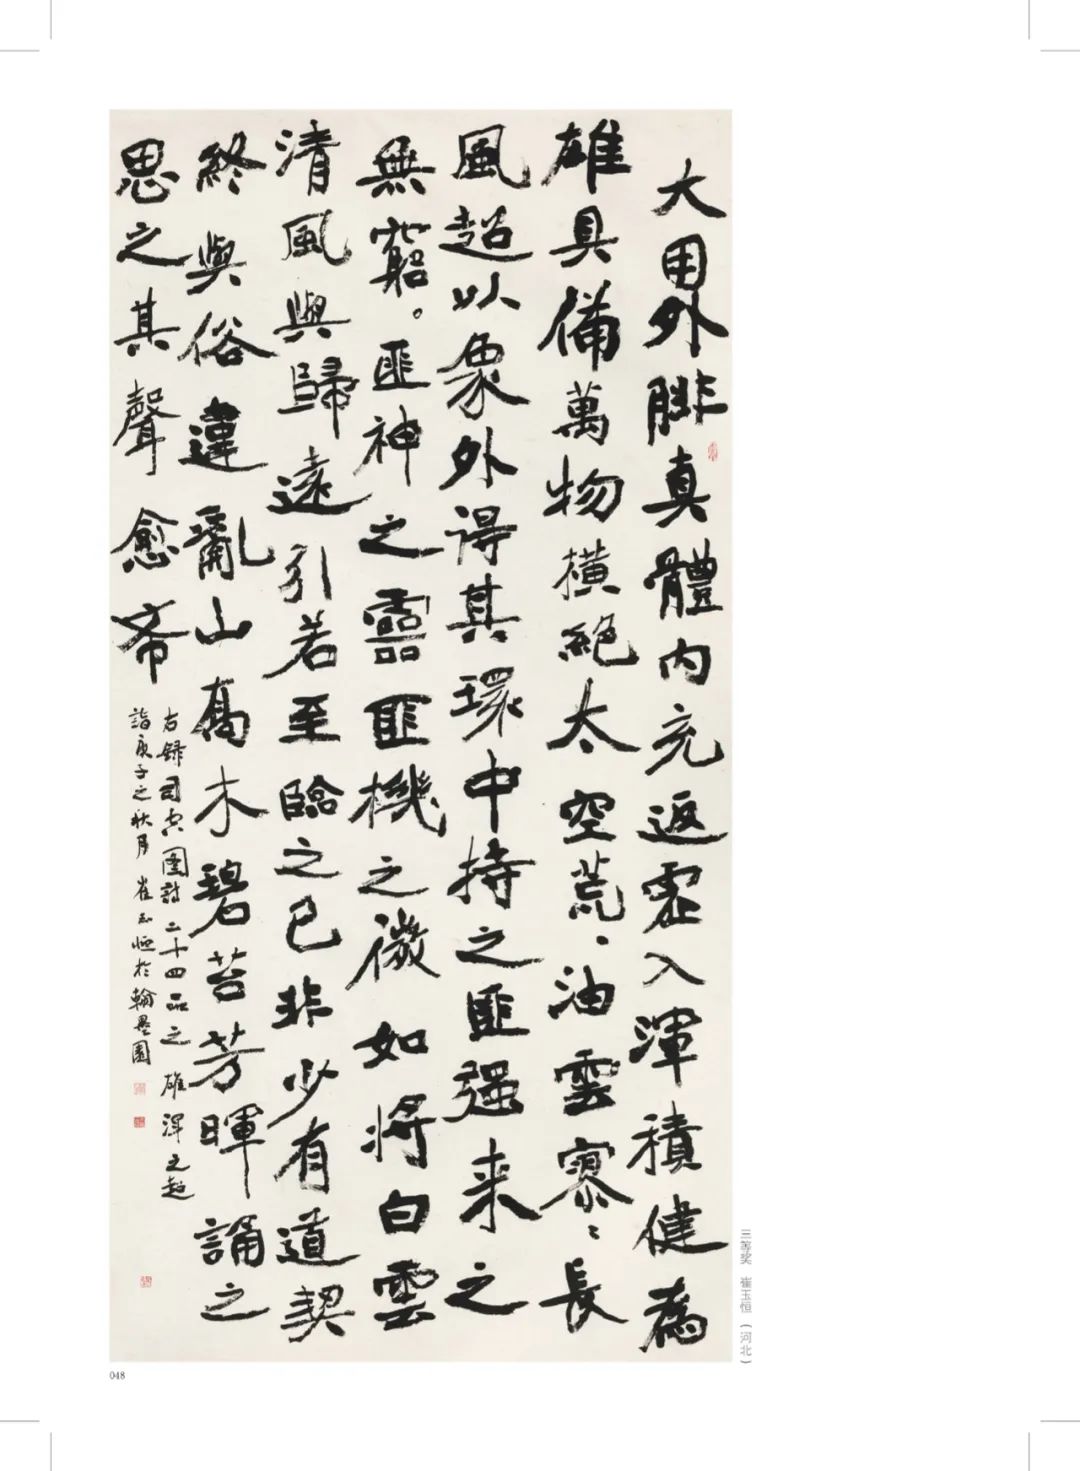 大用外腓真體内充返虛入渾積健為
雄具備萬物橫絕太空荒〻油雲寥〻長
風超以象外得其環中持之匪强来之
無窮。匪神之靈匪機之微如将白雲
清風與歸遠引若至臨之已非少有道契
終與俗違亂山高木碧苔芳暉誦之
思之其聲愈希
右録司空圖詩二十四品之雄渾之超
詣庚子之秋月崔玉恒於翰墨園
三等奖 崔玉恒(河北)
048